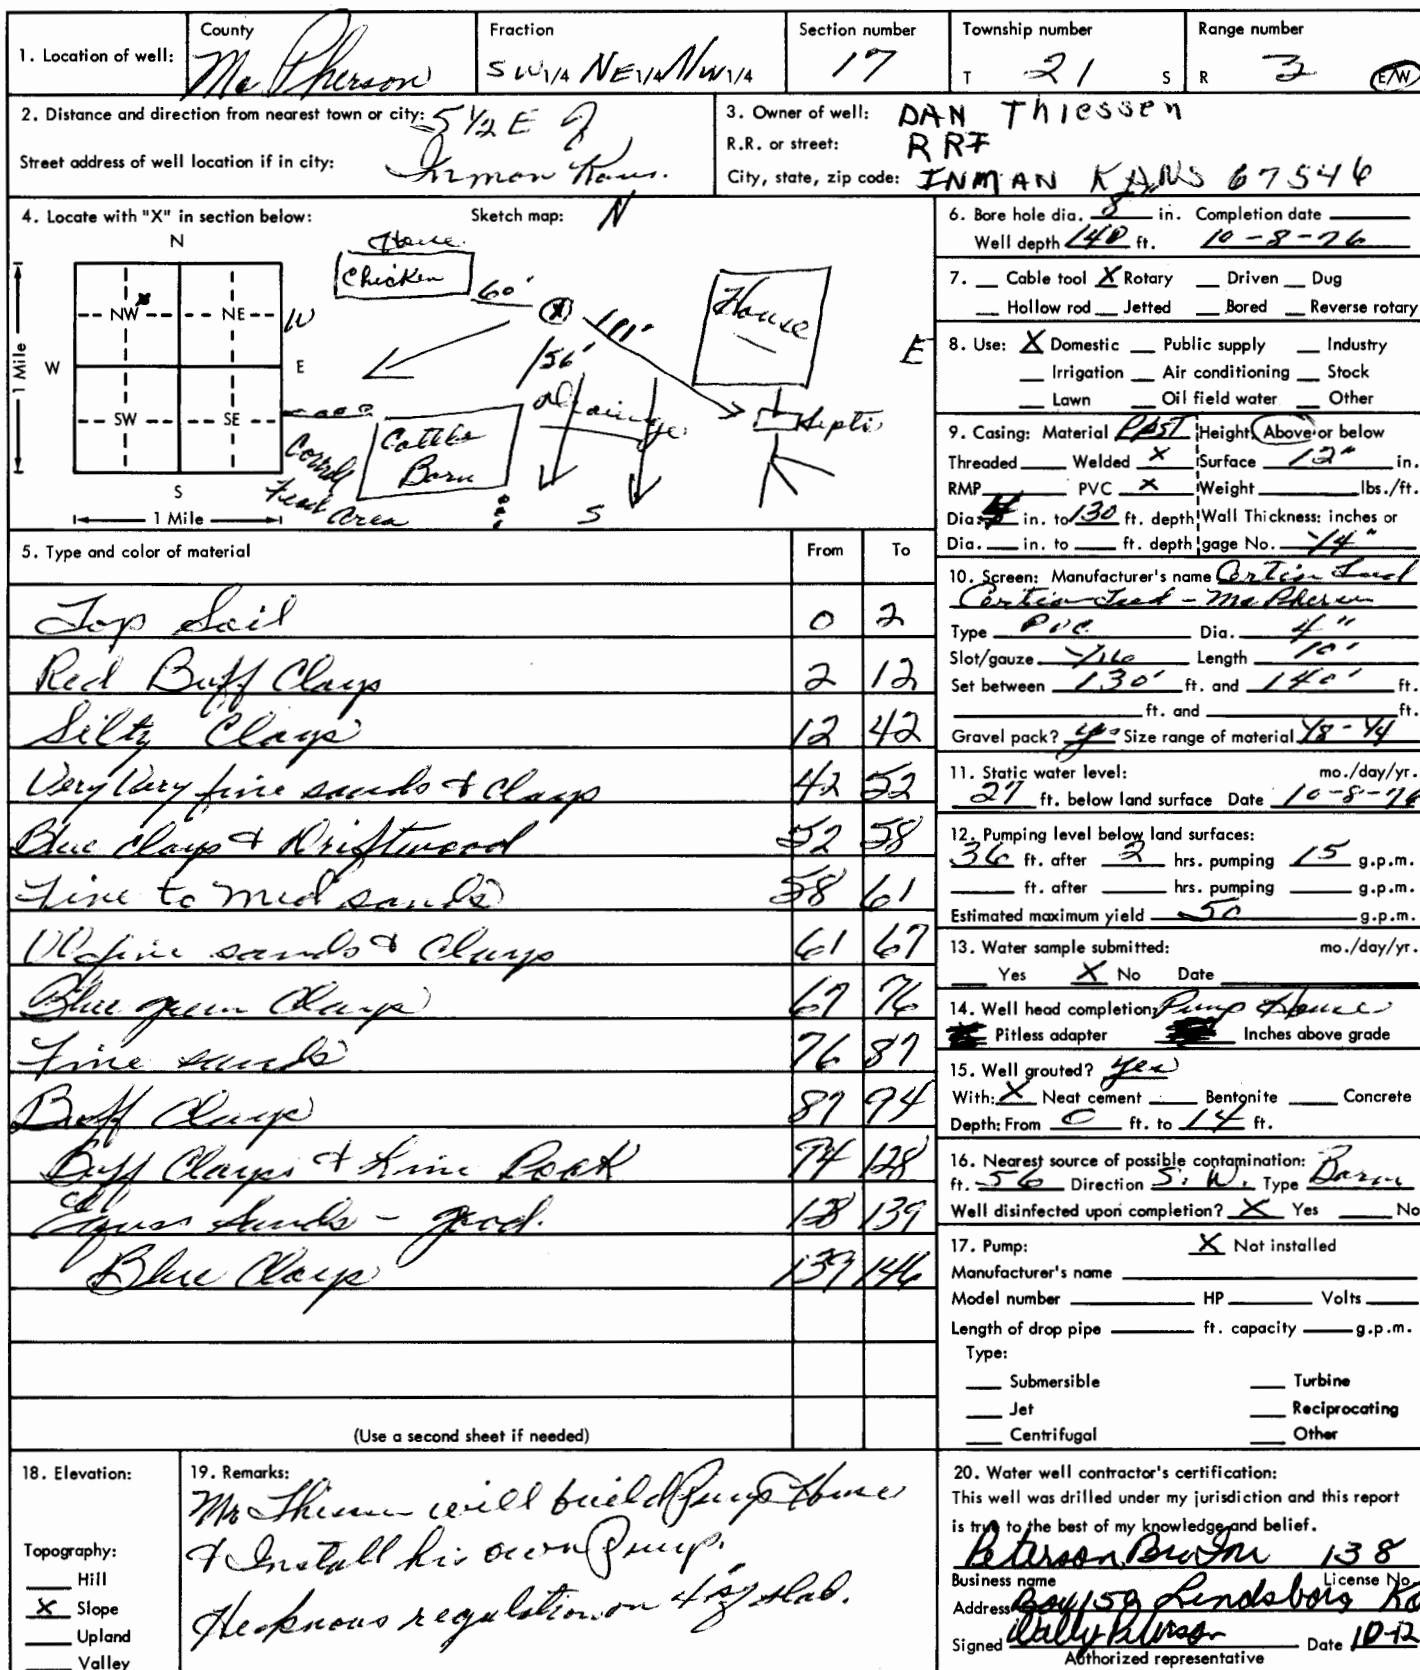 1. Location of well: County McPherson Fraction SW 1/4 NE 1/4 NW 1/4 Section number 17 Township number T 21 S Range number R 3 E/W
2. Distance and direction from nearest town or city: 5 1/2 E of
Street address of well location if in city: Inman Kans.
3. Owner of well: DAN Thiessen
R.R. or street: RR
City, state, zip code: INMAN KANS 67546
4. Locate with "X" in section below:
Sketch map: N
N
NW NE
W E
SW SE
S
1 Mile
1 Mile
House
Chicken
60'
W
X
101'
House
E
156'
drainage
Septic
Cattle
Barn
Corral
Feed
Area
S
5. Type and color of material From To
Top Soil 0 2
Red Buff Clays 2 12
Silty Clays 12 42
Very Very fine sands & Clays 42 52
Blue Clays & Driftwood 52 58
Fine to Med sands 58 61
fine sands & Clays 61 67
Blue green Clays 67 76
Fine sands 76 87
Buff Clays 87 94
Buff Clays & Lime Rock 94 128
Equus Sands - good. 128 139
Blue Clays 139 146
(Use a second sheet if needed)
6. Bore hole dia. 8 in. Completion date
Well depth 140 ft. 10-8-76
7. Cable tool X Rotary Driven Dug
Hollow rod Jetted Bored Reverse rotary
8. Use: X Domestic Public supply Industry
Irrigation Air conditioning Stock
Lawn Oil field water Other
9. Casing: Material Plst Height: Above or below
Threaded Welded X Surface 12" in.
RMP PVC X Weight lbs./ft.
Dia. in. to 130 ft. depth Wall Thickness: inches or
Dia. in. to ft. depth gage No. 1/4"
10. Screen: Manufacturer's name Certain Teed
Certain Teed - McPherson
Type PVC Dia. 4"
Slot/gauze 1/16 Length 10'
Set between 130' ft. and 140' ft.
ft. and ft.
Gravel pack? yes Size range of material 1/8 - 1/4
11. Static water level: mo./day/yr.
27 ft. below land surface Date 10-8-76
12. Pumping level below land surfaces:
36 ft. after 2 hrs. pumping 15 g.p.m.
ft. after hrs. pumping g.p.m.
Estimated maximum yield 50 g.p.m.
13. Water sample submitted: mo./day/yr.
Yes X No Date
14. Well head completion: Pump House
Pitless adapter Inches above grade
15. Well grouted? yes
With: X Neat cement Bentonite Concrete
Depth: From 0 ft. to 14 ft.
16. Nearest source of possible contamination:
ft. 56 Direction S. W. Type Barn
Well disinfected upon completion? X Yes No
17. Pump: X Not installed
Manufacturer's name
Model number HP Volts
Length of drop pipe ft. capacity g.p.m.
Type:
Submersible Turbine
Jet Reciprocating
Centrifugal Other
18. Elevation:
Topography:
Hill
X Slope
Upland
Valley
19. Remarks:
Mr Thiessen will build Pump House
& Install his own Pump.
He knows regulation on 4" slab.
20. Water well contractor's certification:
This well was drilled under my jurisdiction and this report
is true to the best of my knowledge and belief.
Peterson Bro Inc 138
Business name License No.
Address Box 159 Lindsborg Ka
Signed Wally Peterson Date 10-12
Authorized representative